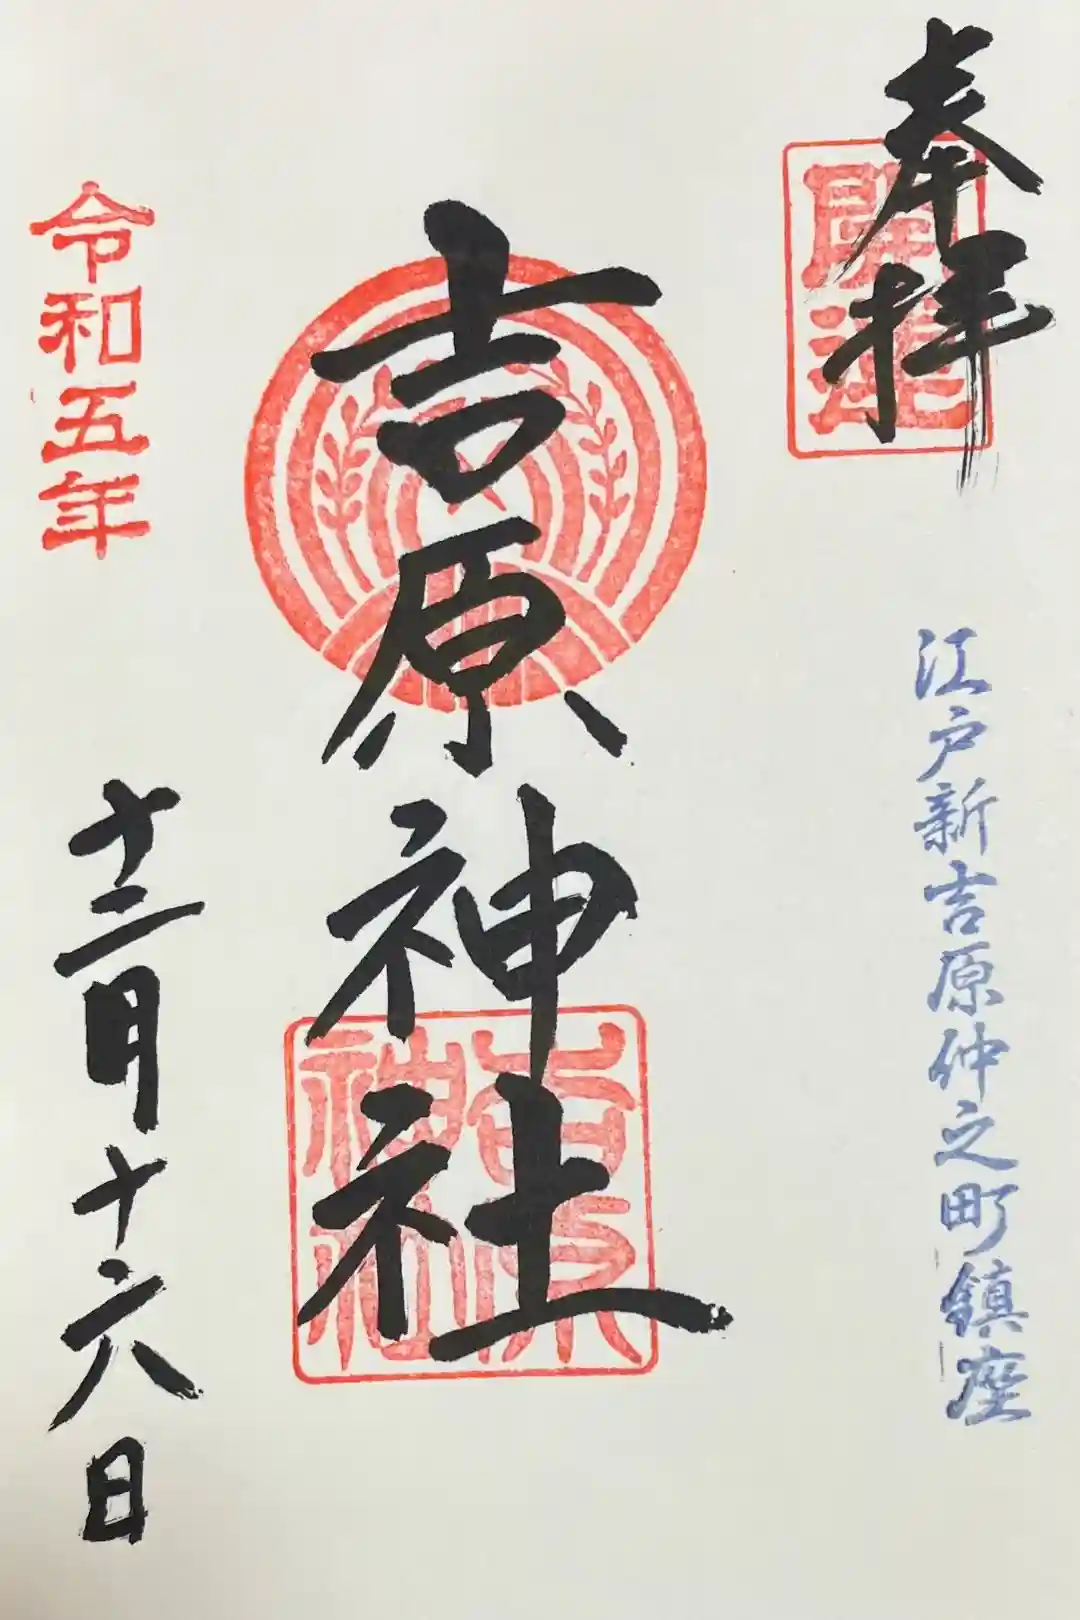 奉拝
開運
江戸新吉原仲之町鎮座
吉原神社
吉原
神社
令和五年
十二月十六日